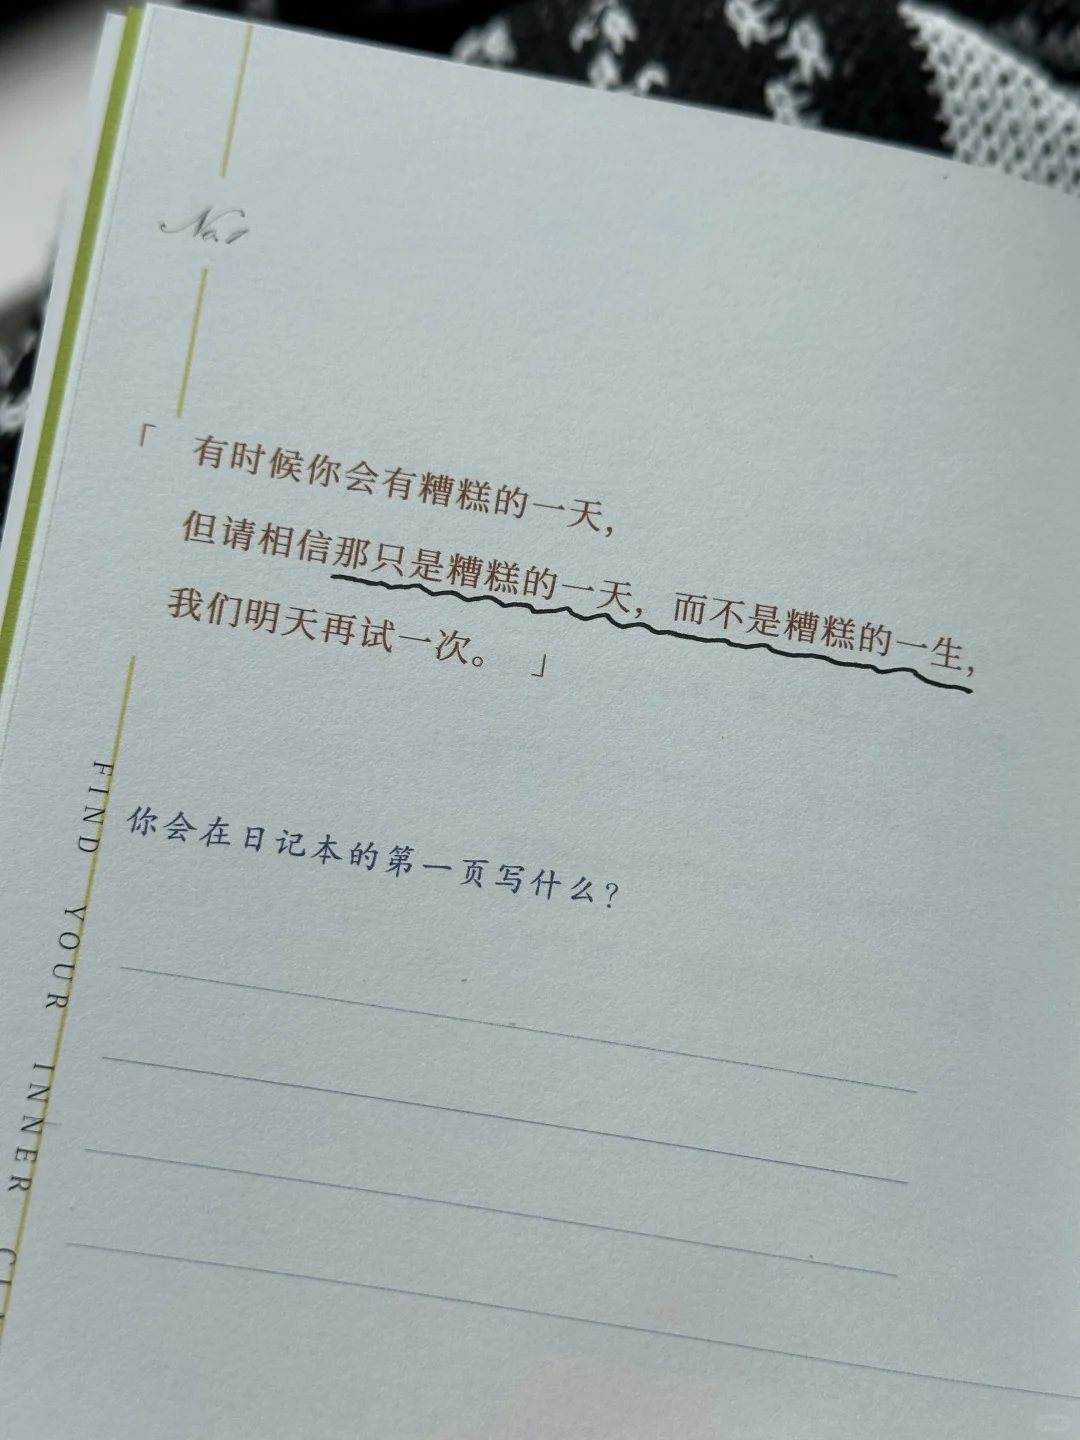 No.1
「 有时候你会有糟糕的一天，
但请相信那只是糟糕的一天，而不是糟糕的一生，
我们明天再试一次。 」
你会在日记本的第一页写什么？
FIND YOUR INNER